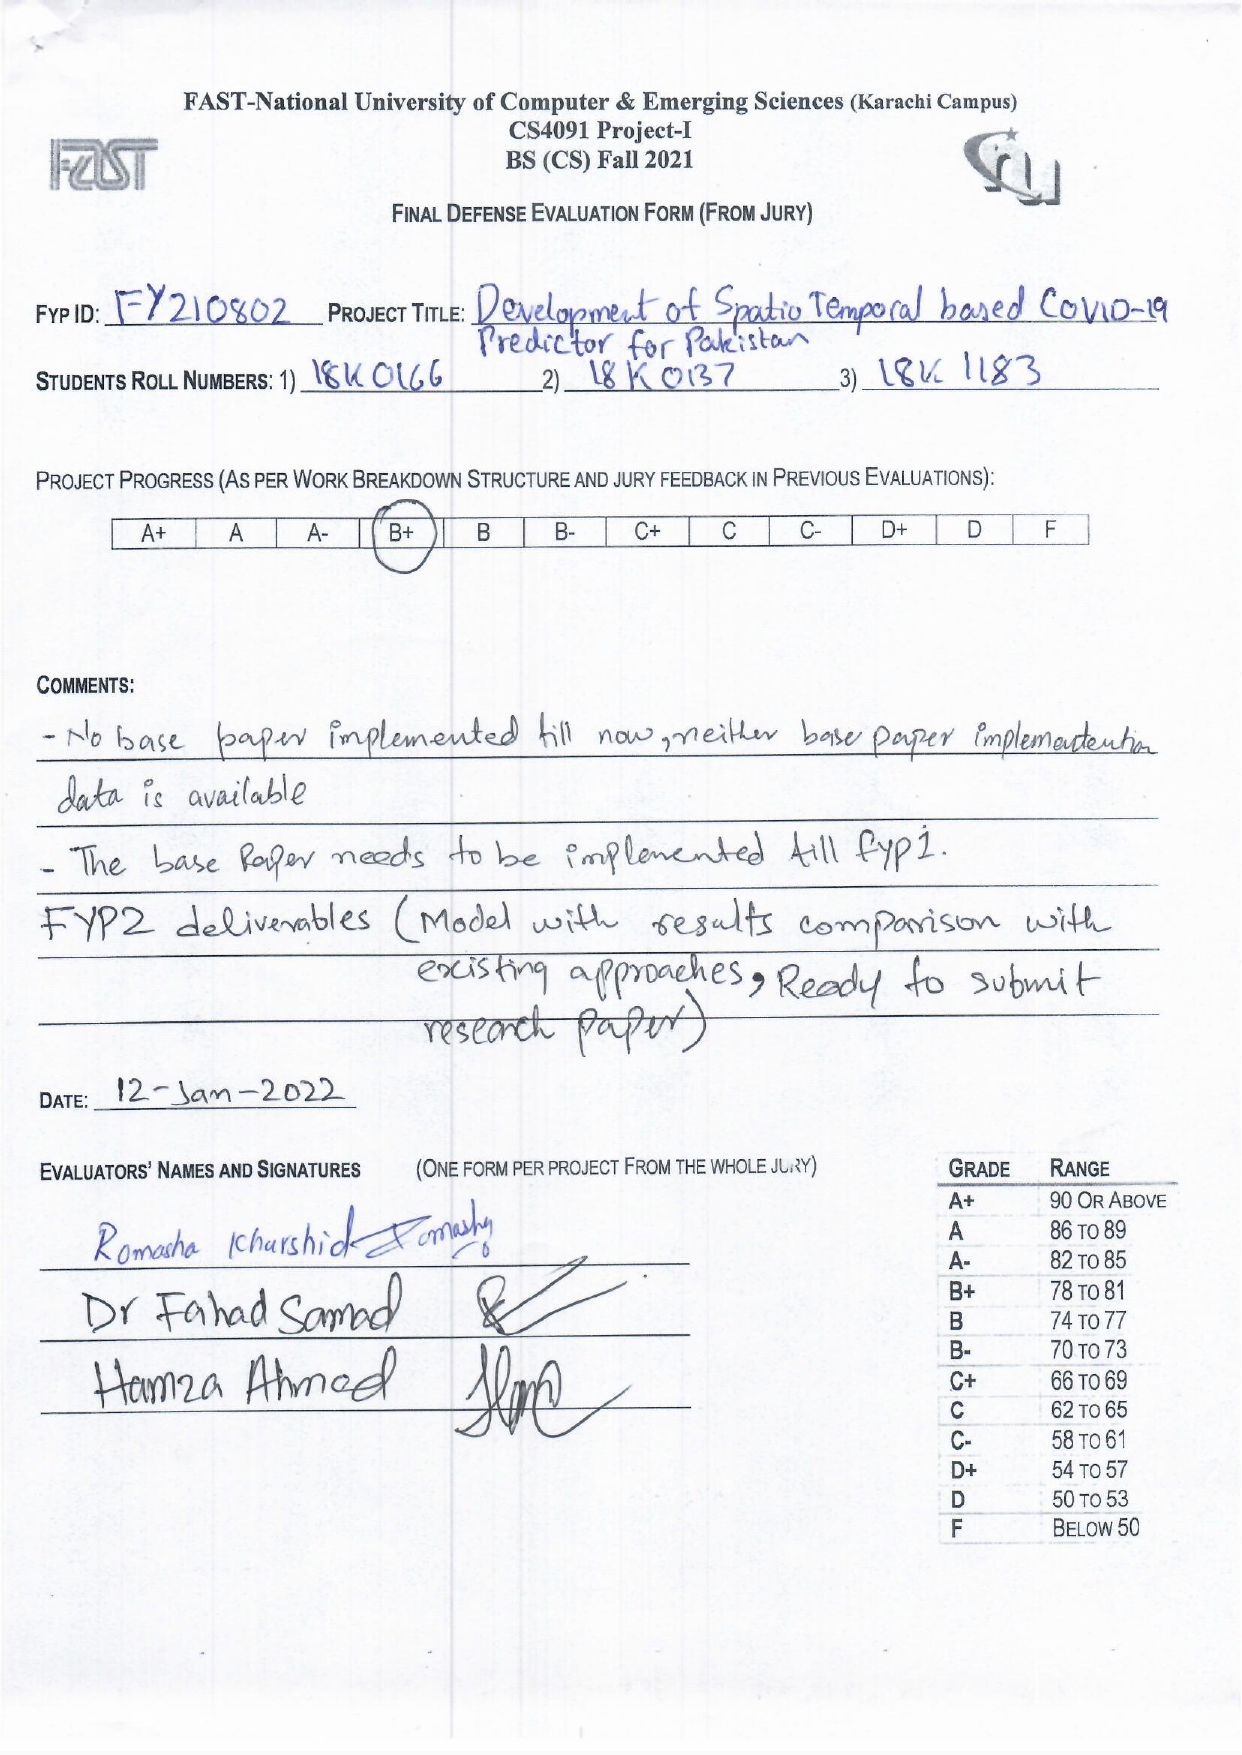 FAST-National University of Computer & Emerging Sciences (Karachi Campus)
CS4091 Project-I
BS (CS) Fall 2021
FAST
NU
FINAL DEFENSE EVALUATION FORM (FROM JURY)
FYP ID: FY210802 PROJECT TITLE: Development of Spatio Temporal based COVID-19
Predictor for Pakistan
STUDENTS ROLL NUMBERS: 1) 18K0166 2) 18K0137 3) 18K1183
PROJECT PROGRESS (AS PER WORK BREAKDOWN STRUCTURE AND JURY FEEDBACK IN PREVIOUS EVALUATIONS):
A+ A A- B+ B B- C+ C C- D+ D F
COMMENTS:
- No base paper implemented till now, neither base paper implementation
data is available
- The base Paper needs to be implemented till fyp1.
FYP2 deliverables (Model with results comparision with
existing approaches, Ready to submit
research paper)
DATE: 12-Jan-2022
EVALUATORS' NAMES AND SIGNATURES (ONE FORM PER PROJECT FROM THE WHOLE JURY)
Romasha Khurshid
Dr Fahad Samad
Hamza Ahmed
GRADE RANGE
A+ 90 OR ABOVE
A 86 TO 89
A- 82 TO 85
B+ 78 TO 81
B 74 TO 77
B- 70 TO 73
C+ 66 TO 69
C 62 TO 65
C- 58 TO 61
D+ 54 TO 57
D 50 TO 53
F BELOW 50